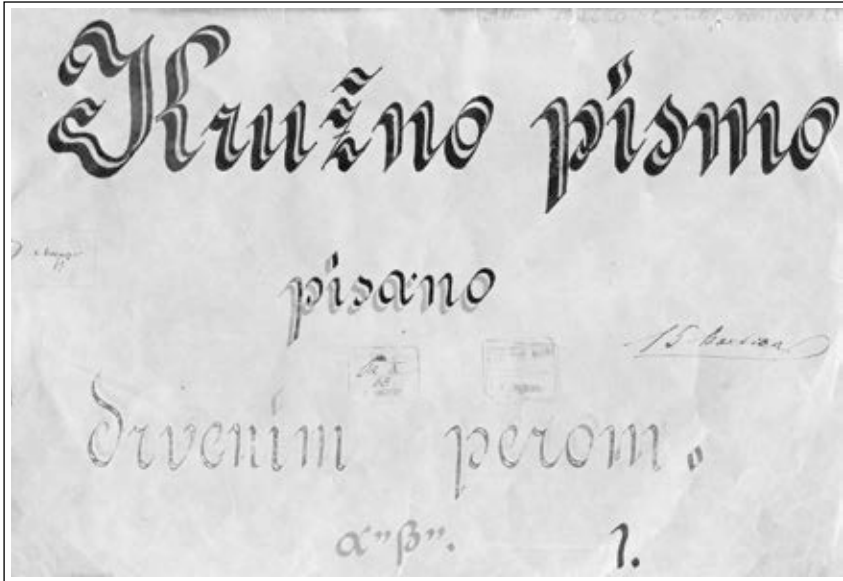 Kružno pismo
pisano
15
drvenim perom.
α"β".
1.